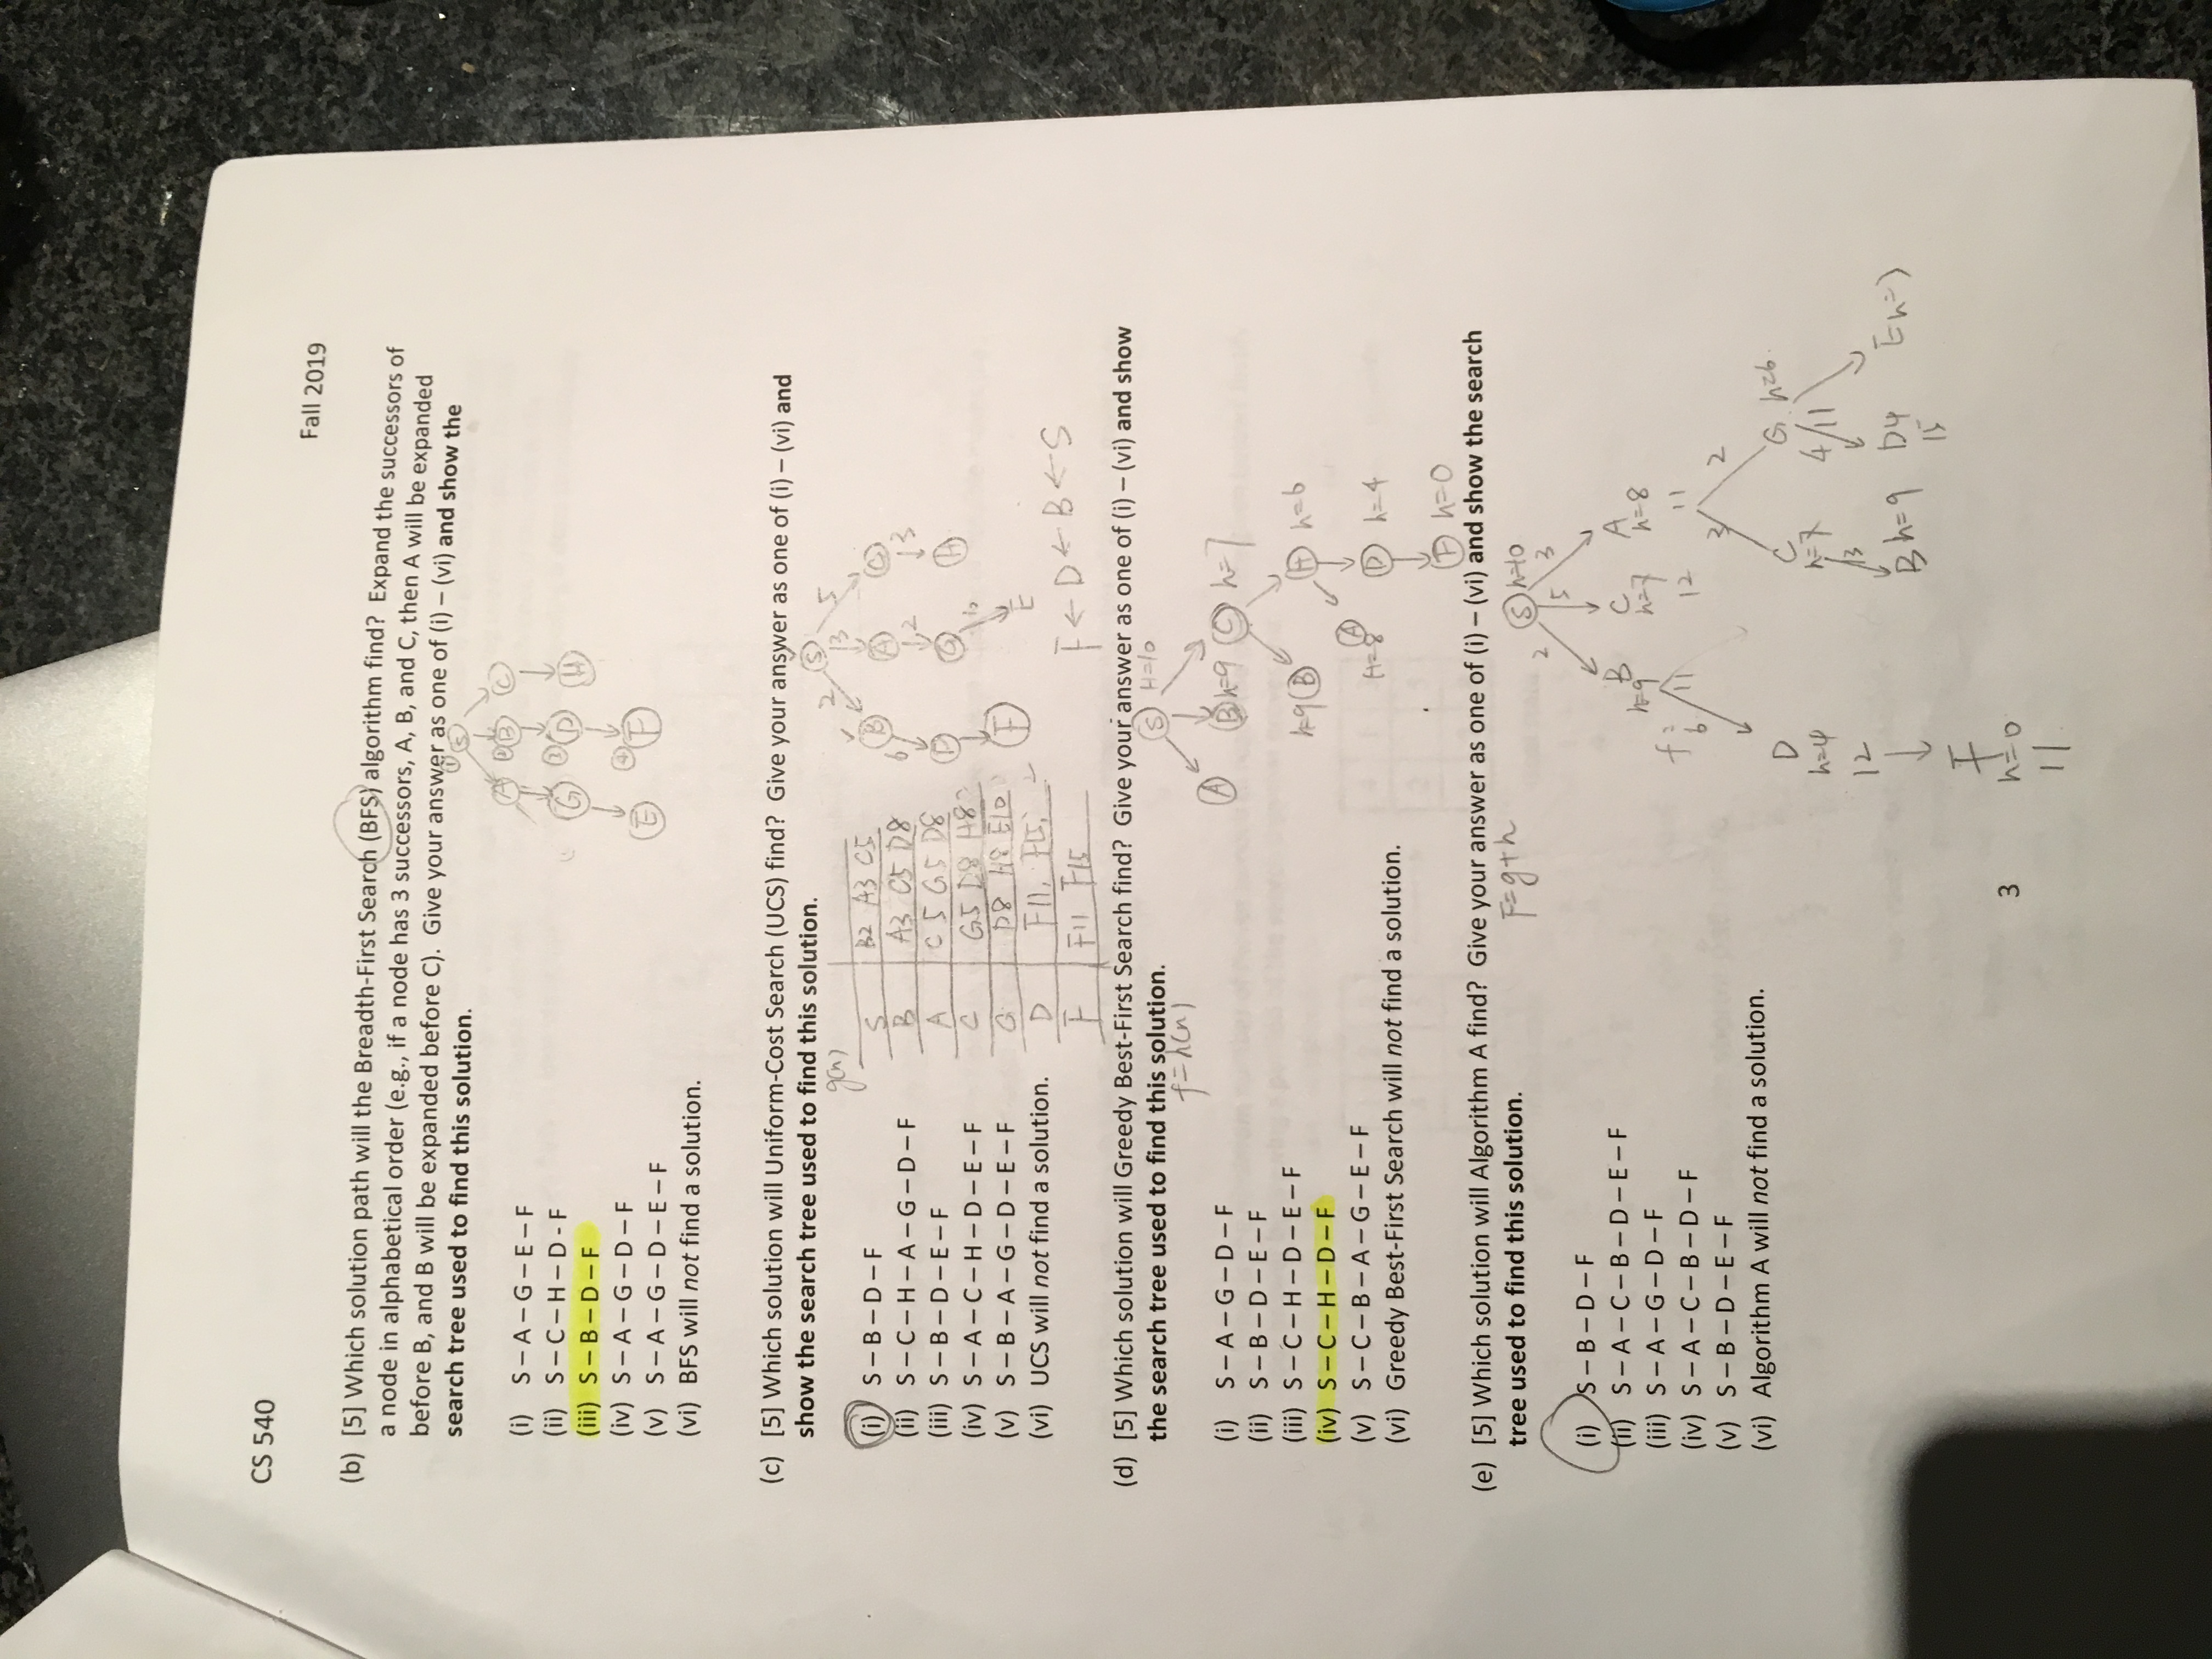 CS 540
Fall 2019
(b) [5] Which solution path will the Breadth-First Search (BFS) algorithm find? Expand the successors of
a node in alphabetical order (e.g., if a node has 3 successors, A, B, and C, then A will be expanded
before B, and B will be expanded before C). Give your answer as one of (i) – (vi) and show the
search tree used to find this solution.
① S
A ② B C
(i) S – A – G – E – F
(ii) S – C – H – D - F
G ③ D H
(iii) S – B – D – F
(iv) S – A – G – D – F
E ④ F
(v) S – A – G – D – E – F
(vi) BFS will not find a solution.
(c) [5] Which solution will Uniform-Cost Search (UCS) find? Give your answer as one of (i) – (vi) and
show the search tree used to find this solution.
g(n)
(i) S – B – D – F
(ii) S – C – H – A – G – D – F
(iii) S – B – D – E – F
(iv) S – A – C – H – D – E – F
(v) S – B – A – G – D – E – F
(vi) UCS will not find a solution.
S B2 A3 C5
B A3 C5 D8
A C5 G5 D8
C G5 D8 H8
G D8 H8 E10
D F11, F15,
F F11 F15
S
2 3 5
B A C
6 2 3
D G H
10
F E
F ← D ← B ← S
(d) [5] Which solution will Greedy Best-First Search find? Give your answer as one of (i) – (vi) and show
the search tree used to find this solution.
f=h(n)
(i) S – A – G – D – F
(ii) S – B – D – E – F
(iii) S – C – H – D – E – F
(iv) S – C – H – D – F
(v) S – C – B – A – G – E – F
(vi) Greedy Best-First Search will not find a solution.
S H=10
A B h=9 C h=7
h=9 B H h=6
A
H=8 D h=4
F h=0
(e) [5] Which solution will Algorithm A find? Give your answer as one of (i) – (vi) and show the search
tree used to find this solution.
F=g+h
(i) S – B – D – F
(ii) S – A – C – B – D – E – F
(iii) S – A – G – D – F
(iv) S – A – C – B – D – F
(v) S – B – D – E – F
(vi) Algorithm A will not find a solution.
S h=10
2 5 3
B C A
h=9 h=7 h=8
f= 11 12 11
6 3 2
D C G h=6
h=4 h=7 4 11
12 3
B h=9 D4 E h=3
15
F
h=0
11
3